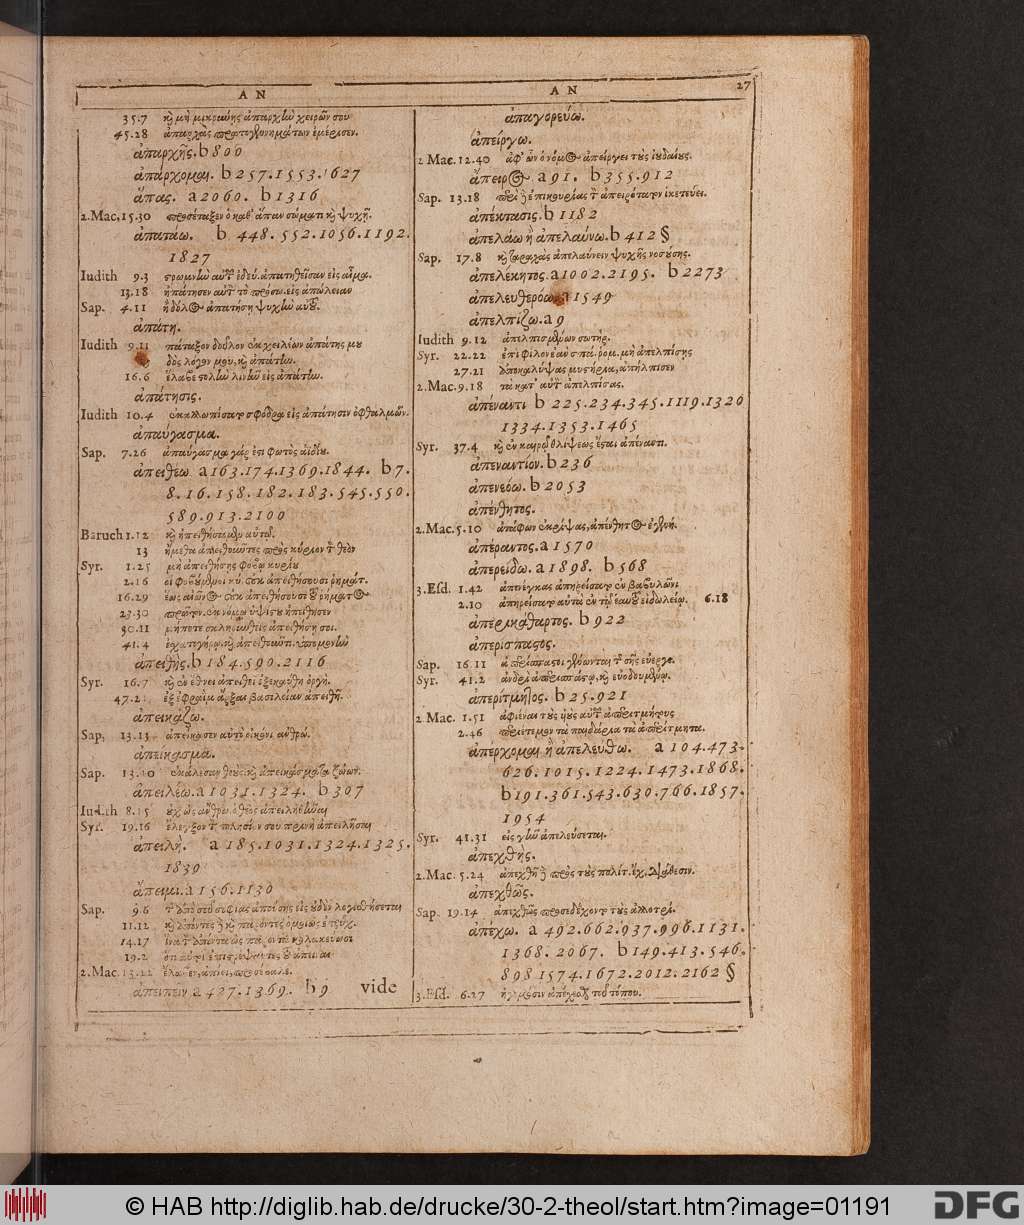 A N
35.7 καὶ μὴ μικρύνῃς ἀπαρχὴν χειρῶν σου
45.28 ἀπαρχὰς πρωτογεννημάτων ἐμέρισεν.
ἀπαρχῆς. b 800
ἀπάρχομαι. b 257.1553.1627
ἅπας. a 2060. b 1316
2.Mac. 15.30 προσέταξεν ὁ καθ' ἅπαν σώματι καὶ ψυχῇ.
ἀπατάω. b 448.552.1056.1192.
1827
Iudith 9.3
13.18 ἠπάτησεν αὐτὸν τὸ πρόσω. εἰς ἀπώλειαν
Sap. 4.11 ἢ δόλος ἀπατήσῃ ψυχὴν αὐτοῦ.
ἀπάτη.
Iudith 9.11 πάταξον δοῦλον ἐκ χειλέων ἀπάτης μου
δὸς λόγον μου, καὶ ἀπάτην.
16.6 ἔλαβε στολὴν λινῆν εἰς ἀπάτην.
ἀπάτησις.
Iudith 10.4 σφόδρα εἰς ἀπάτησιν ὀφθαλμῶν.
ἀπαύγασμα.
Sap. 7.26 ἀπαύγασμα γάρ ἐστι φωτὸς ἀϊδίου.
ἀπειθέω a 163.174.1369.1844. b 7.
8.16.158.182.183.545.550.
589.913.2100
Baruch 1.12
13 ἤμεθα ἀπειθοῦντες πρὸς κύριον τὸν θεὸν
Syr. 1.25 μὴ ἀπειθήσῃς φόβῳ κυρίου
2.16 οἱ φοβούμενοι κυ. οὐκ ἀπειθήσουσι ῥημάτ.
16.29 ἕως αἰῶνος οὐκ ἀπειθήσουσι τοῦ ῥήματος
23.30 πρῶτον. ἐν νόμῳ ὑψίστου ἠπείθησεν
30.11 μήποτε σκληρυνθεὶς ἀπειθήσῃ σοι.
41.4 ἐσχατογήρῳ. καὶ ἀπειθοῦντι. ὑπομονὴν
ἀπειθής. b 184.590.2116
Syr. 16.7 καὶ ἐν ἔθνει ἀπειθεῖ ἐξεκαύθη ὀργή.
47.2 ἐξ ἐφραῒμ ἄρξαι βασιλείαν ἀπειθῆ.
ἀπεικάζω.
Sap. 13.13 ἀπείκασεν αὐτὸ εἰκόνι ἀνθρώ.
ἀπείκασμα.
Sap. 13.10 ἐκάλεσαν θεοὺς. καὶ ἀπεικάσματα ζώων.
ἀπειλέω. a 1031.1324. b 307
Iudith 8.15 οὐχ ὡς ἄνθρω. ὁ θεὸς ἀπειληθῆναι
Syr. 19.16 ἔλεγξον τὸν πλησίον σου πρὶν ἢ ἀπειλῆσαι
ἀπειλή. a 185.1031.1324.1325.
1839
ἄπειμι. a 156.1130
Sap. 9.6 τῆς ἀπὸ σοῦ σοφίας ἀπούσης εἰς οὐδὲν λογισθήσεται
11.12 καὶ ἀπόντες δὲ καὶ παρόντες ὁμοίως ἐτρύχ.
14.17 ἵνα τὸν ἀπόντα ὡς παρόντα κολακεύωσι
19.2
2.Mac. 13.22
ἀπειπεῖν a 427.1369. b 9 vide
A N 27
ἀπαγορεύω.
ἀπείργω.
2 Mac. 12.40 ἀφ' ὧν ὁ νόμος ἀπείργει τοὺς ἰουδαίους.
ἄπειρος. a 91. b 355.912
Sap. 13.18 περὶ δὲ ἐπικουρίας τὸ ἀπειρότατον ἱκετεύει.
ἀπέκτασις. b 1182
ἀπελάω ἢ ἀπελαύνω. b 412 §
Sap. 17.8 καὶ ταραχὰς ἀπελαύνειν ψυχῆς νοσούσης.
ἀπελέκητος. a 1002.2195. b 2273
ἀπελευθερόω. a 1549
ἀπελπίζω. a 9
Iudith 9.12 ἀπελπισμένων σωτήρ.
Syr. 22.22 ἐπὶ φίλον ἐὰν σπά. ῥομ. μὴ ἀπελπίσῃς
27.21 ἀποκαλύψας μυστήρια, ἀπήλπισεν
2.Mac. 9.18 τὰ κατ' αὐτὸν ἀπελπίσας.
ἀπέναντι b 225.234.345.1119.1320
1334.1353.1465
Syr. 37.4 καὶ ἐν καιρῷ θλίψεως ἔσται ἀπέναντι.
ἀπεναντίον. b 236
ἀπενεόω. b 2053
ἀπένθητος.
2.Mac. 5.10 ἀτάφων ἐκρίψας, ἀπένθητος ἐγενή.
ἀπέραντος. a 1570
ἀπερείδω. a 1898. b 568
3.Esd. 1.42 ἀπενέγκας ἀπηρείσατο ἐν βαβυλῶνι
2.10 ἀπηρείσατο αὐτὰ ἐν τῷ ἑαυτοῦ εἰδωλείῳ. 6.18
ἀπερικάθαρτος. b 922
ἀπερίσπαστος.
Sap. 16.11 ἀπερίσπαστοι γένωνται τῆς σῆς εὐεργε.
Syr. 41.2 ἀνδρὶ ἀπερισπάστῳ, καὶ εὐοδουμένῳ.
ἀπερίτμητος. b 25.921
2 Mac. 1.51 ἀφιέναι τοὺς υἱοὺς αὐτῶν ἀπεριτμήτους
2.46 περιέτεμον τὰ παιδάρια τὰ ἀπερίτμητα.
ἀπέρχομαι ἢ ἀπελεύθω. a 104.473.
626.1015.1224.1473.1868.
b 191.361.543.630.766.1857.
1954
Syr. 41.31 εἰς γῆν ἀπελεύσεται.
ἀπεχθής.
2.Mac. 5.24 ἀπεχθῆ δὲ πρὸς τοὺς πολίτ. ἔχ. διάθεσιν.
ἀπεχθῶς.
Sap. 19.14 ἀπεχθῶς προσεδέχοντο τοὺς ἀλλοτρί.
ἀπέχω. a 492.662.937.996.1131.
1368.2067. b 149.413.546.
898.1574.1672.2012.2162 §
3.Esd. 6.27 ἡγεμόσιν ἀπέχεσθαι τοῦ τόπου.
© HAB http://diglib.hab.de/drucke/30-2-theol/start.htm?image=01191
DFG